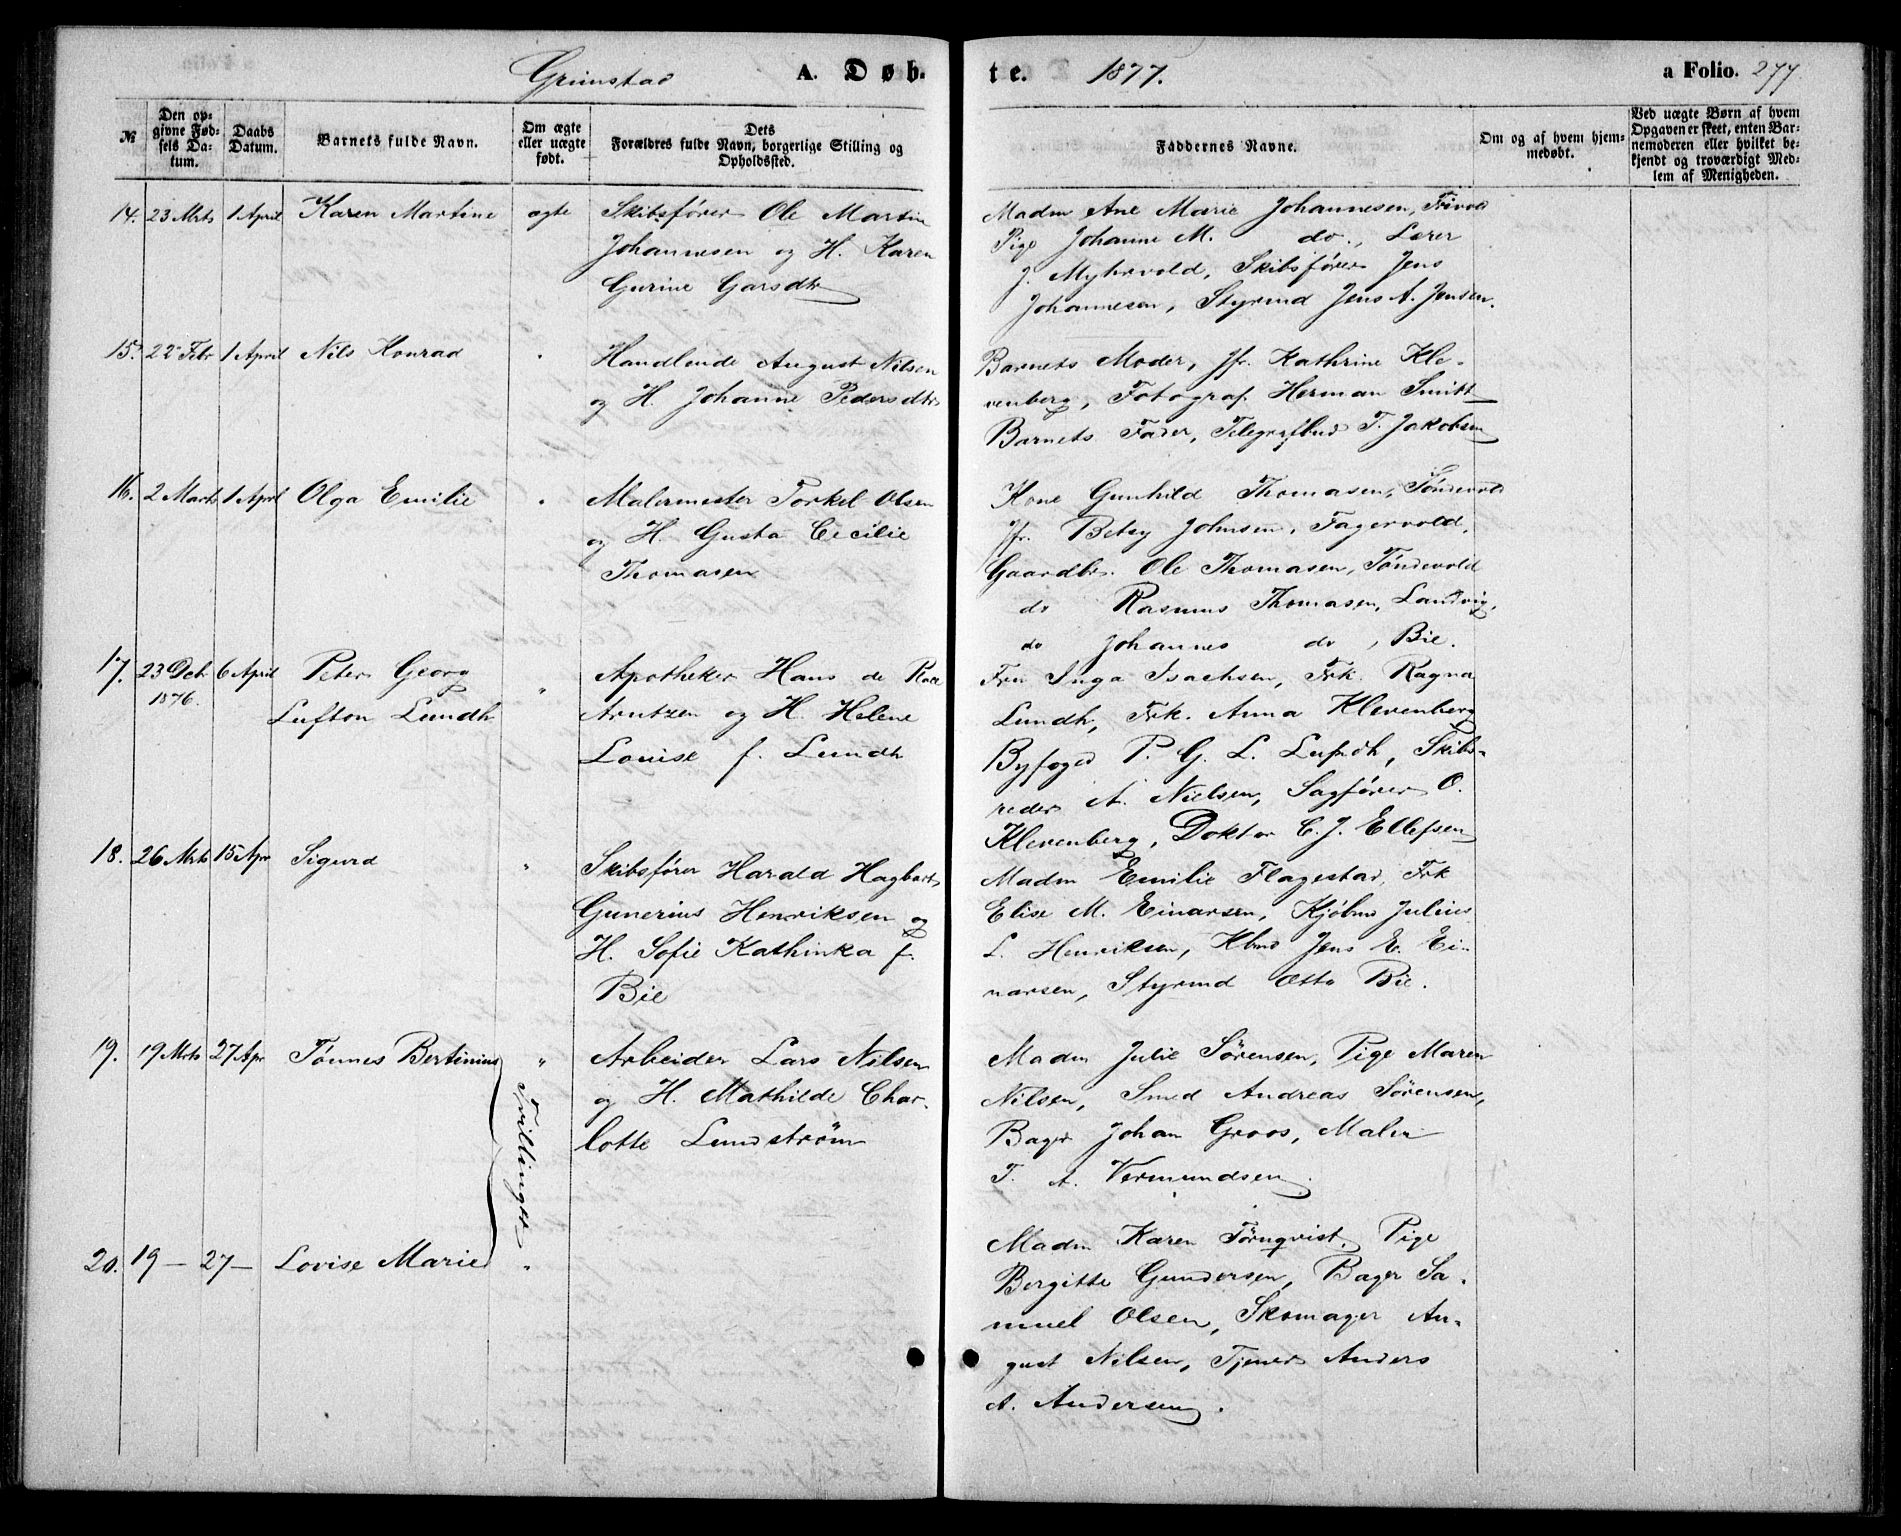 Grimstad A. Døb- te. 1877. a Folio. 277.
№
Den op-
givne Fød-
sels Da-
tum.
Daabs
Datum.
Barnets fulde Navn.
Om ægte
eller uægte
født.
Dets
Forældres fulde Navn, borgerlige Stilling og
Opholdssted.
Faddernes Navne.
Om og af hvem hjem-
medøbt.
Ved uægte Børn af hvem
Opgaven er skeet, enten Bar-
nemoderen eller hvilket be-
kjendt og troværdigt Med-
lem af Menigheden.
14. 23 Mrts 1 April Karen Martine ægte
Skibsfører Ole Martin
Johannesen og H. Karen
Gurine Garsdtr
Madm Ane Marie Johannesen, Frivold
Pige Johanne M. do., Lærer
J. Myhrvold, Skibsfører Jens
Johannesen, Styrmd Jens A. Jensen.
15. 22 Febr 1 April Nils Konrad "
Handlende August Nilsen
og H. Johanne Pedersdtr
Barnets Moder, Jfr. Kathrine Kle-
venberg, Fotograf Herman Smitt
Barnets Fader, Telegrafbud T. Jakobsen
16. 2 Marts 1 April Olga Emilie "
Malermester Torkel Olsen
og H. Gusta Cecilie
Thomasen
Kone Gunhild Thomasen, Tøndevold
Jfr. Betsy Johnsen, Fagervold,
Gaardbr. Ole Thomasen, Tøndevold
do Rasmus Thomasen, Landvig,
do Johannes do, Bie.
17. 23 Dcb 6 April Peter Georg "
1876.
Lufton Lundh
Apotheker Hans de
Arntzen og H. Helene
Louise f. Lundh
Fru Inga Isachsen, Frk. Ragna
Lundh, Frk. Anna Klevenberg
Byfoged P. G. L. Lundh, Skibs-
reder A. Nielsen, Sagfører O.
Klevenberg, Doktor C. J. Ellefsen
18. 26 Mrts 15 Apr Sigurd "
Skibsfører Harald Hagbart
Gunerius Henriksen og
H. Sofie Kathinka f.
Bie
Madm Emilie Flagestad, Frk
Elise M. Einarsen, Kjøbmd Julius
L. Henriksen, Kbmd Jens E. Ei-
narsen, Styrmd Otto Bie.
19. 19 Mrts 27 Apr Tønnes Bertinius "
Tvillinger
Arbeider Lars Nilsen
og H. Mathilde Char-
lotte Lundstrøm
Madm Julie Sørensen, Pige Maren
Nilsen, Smed Andreas Sørensen,
Bager Johan Groos, Maler
T. A. Vermundsen.
20. 19 — 27 — Lovise Marie "
Madm Karen Törnqvist, Pige
Bergitte Gundersen, Bager Sa-
muel Olsen, Skomager Au-
gust Nilsen, Tjener Anders
A. Andersen.